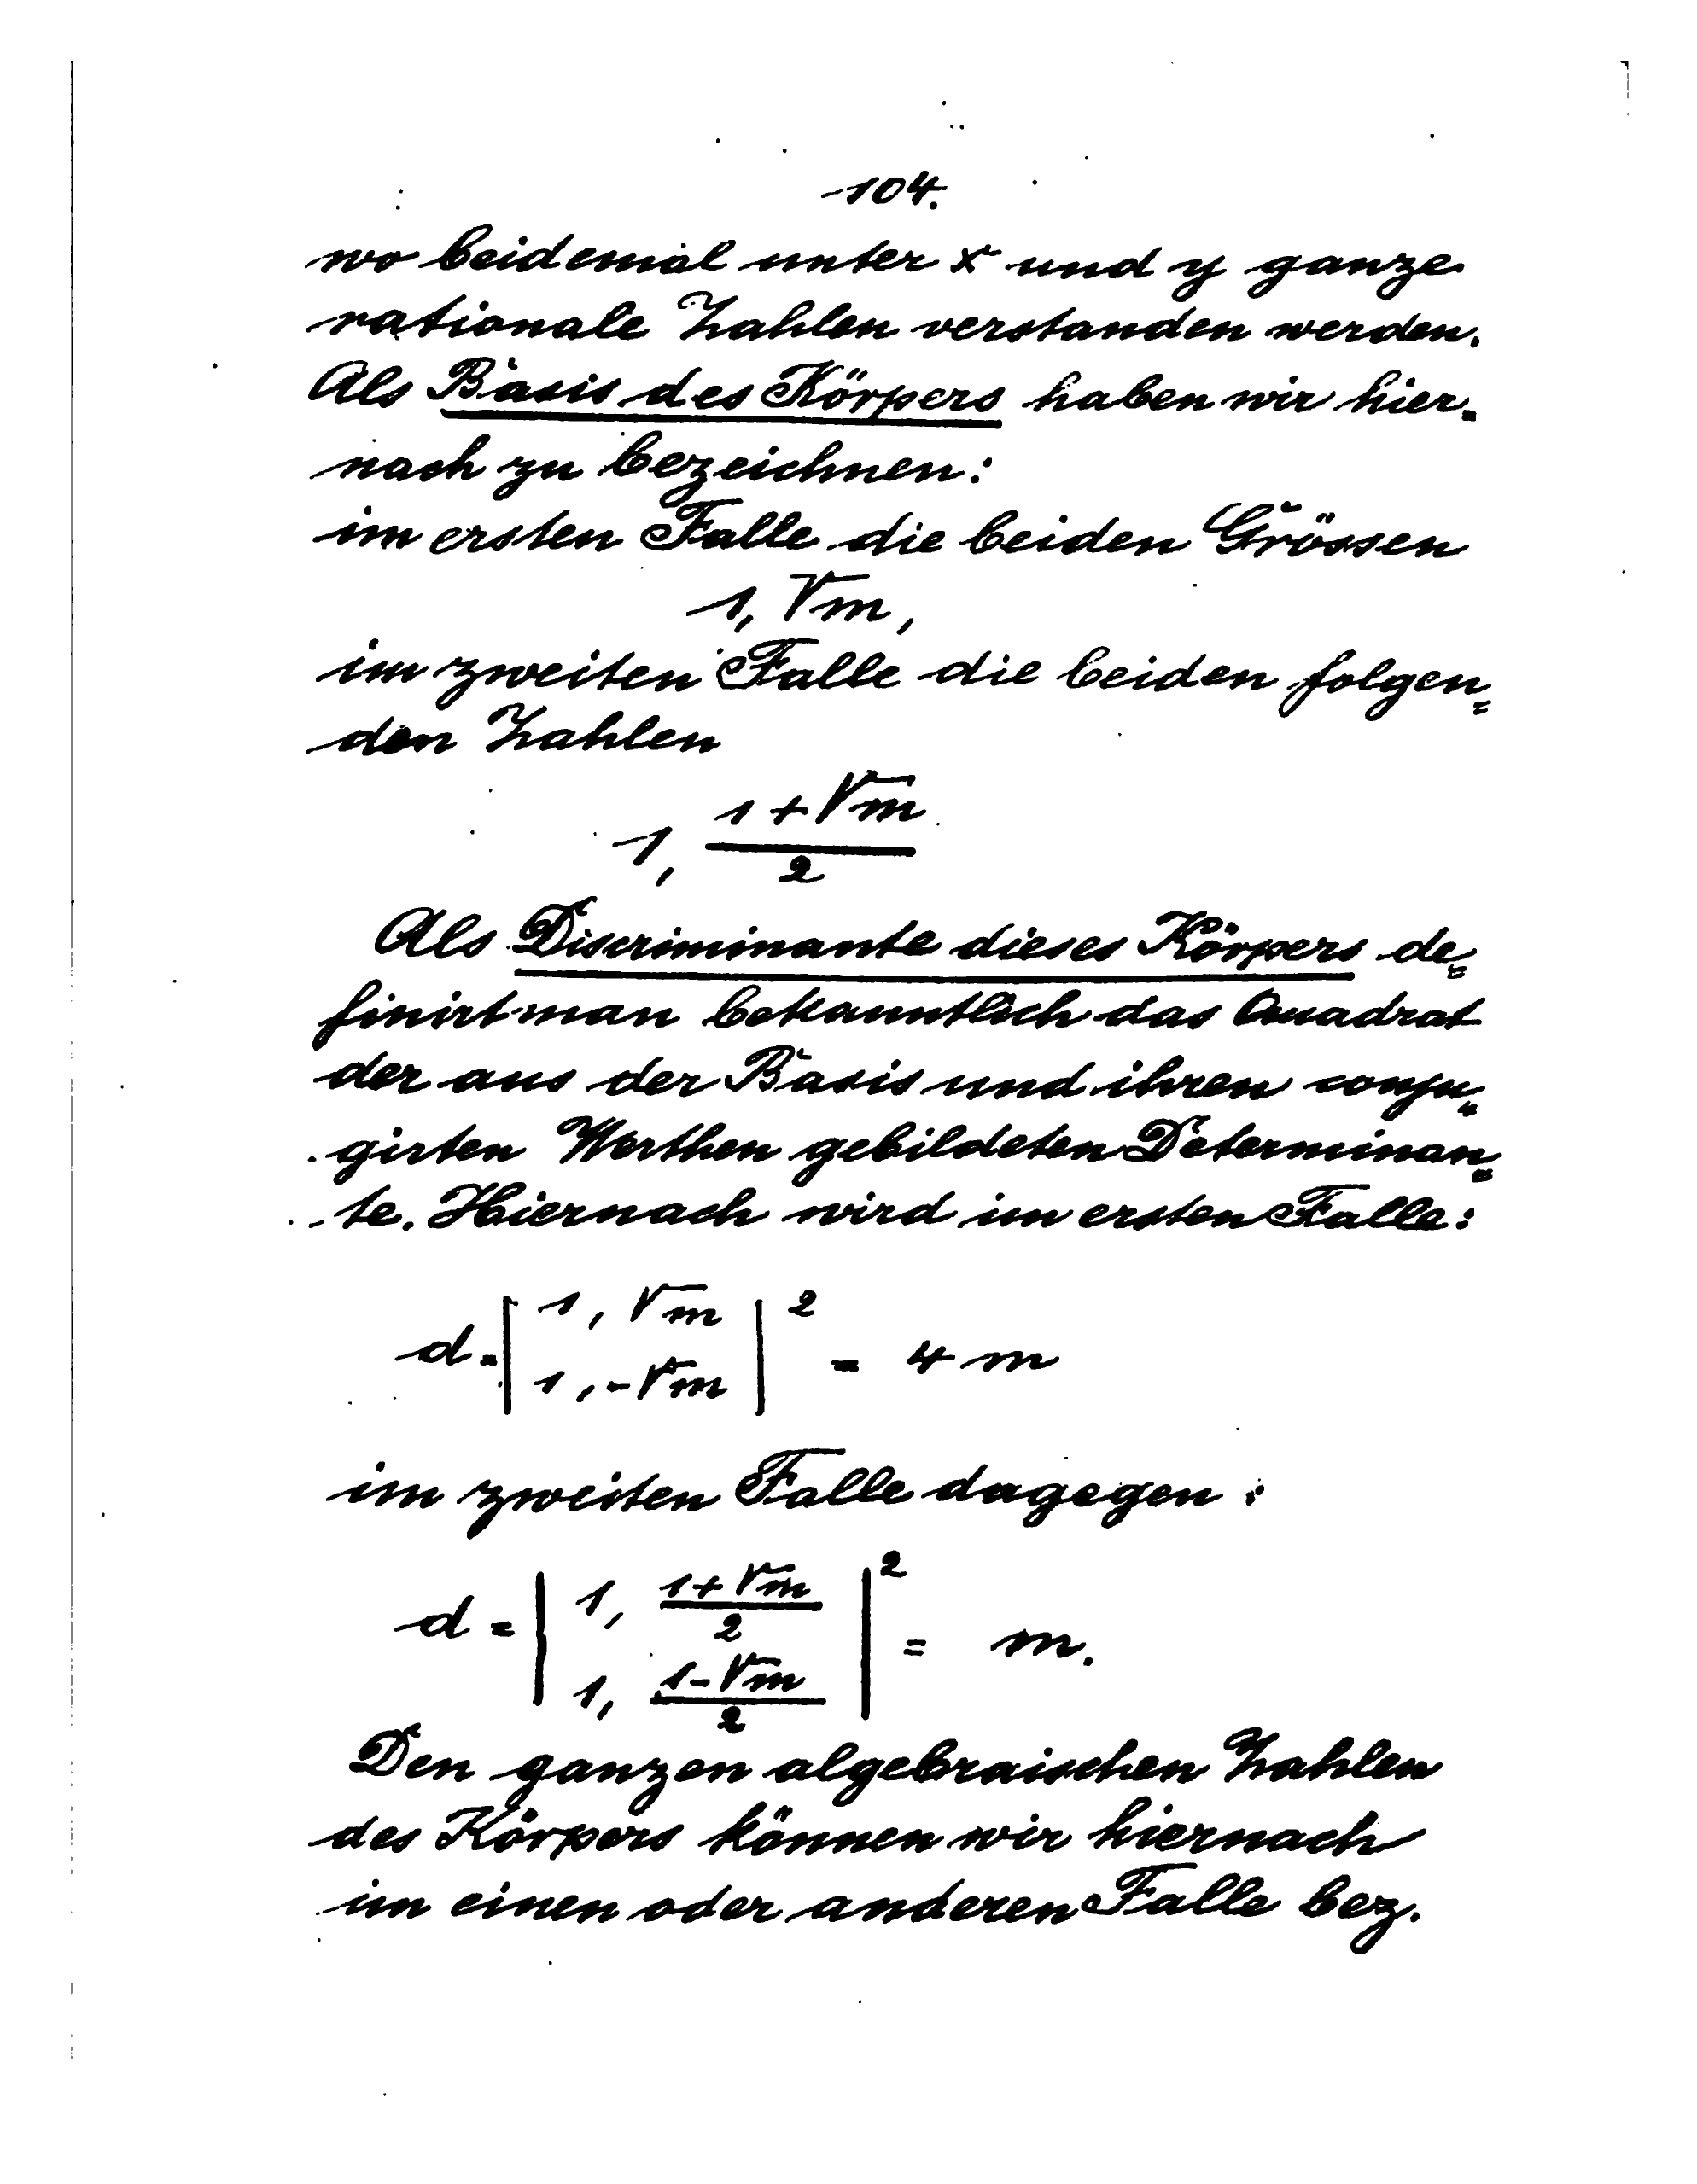 104.
wo beidemal unter x und y ganze
rationale Zahlen verstanden werden.
Als Basis des Körpers haben wir hier-
nach zu bezeichnen:
im ersten Falle die beiden Grössen
1, √m,
im zweiten Falle die beiden folgen=
den Zahlen
1, (1+√m)/2
Als Discriminante dieses Körpers de=
finirt man bekanntlich das Quadrat
der aus der Basis und ihren conju=
girten Werthen gebildeten Determinan=
te. Hiernach wird im ersten Falle:
d = | 1, √m ; 1, -√m |² = 4m
im zweiten Falle dagegen:
d = | 1, (1+√m)/2 ; 1, (1-√m)/2 |² = m.
Den ganzen algebraischen Zahlen
des Körpers können wir hiernach
im einen oder anderen Falle bez.